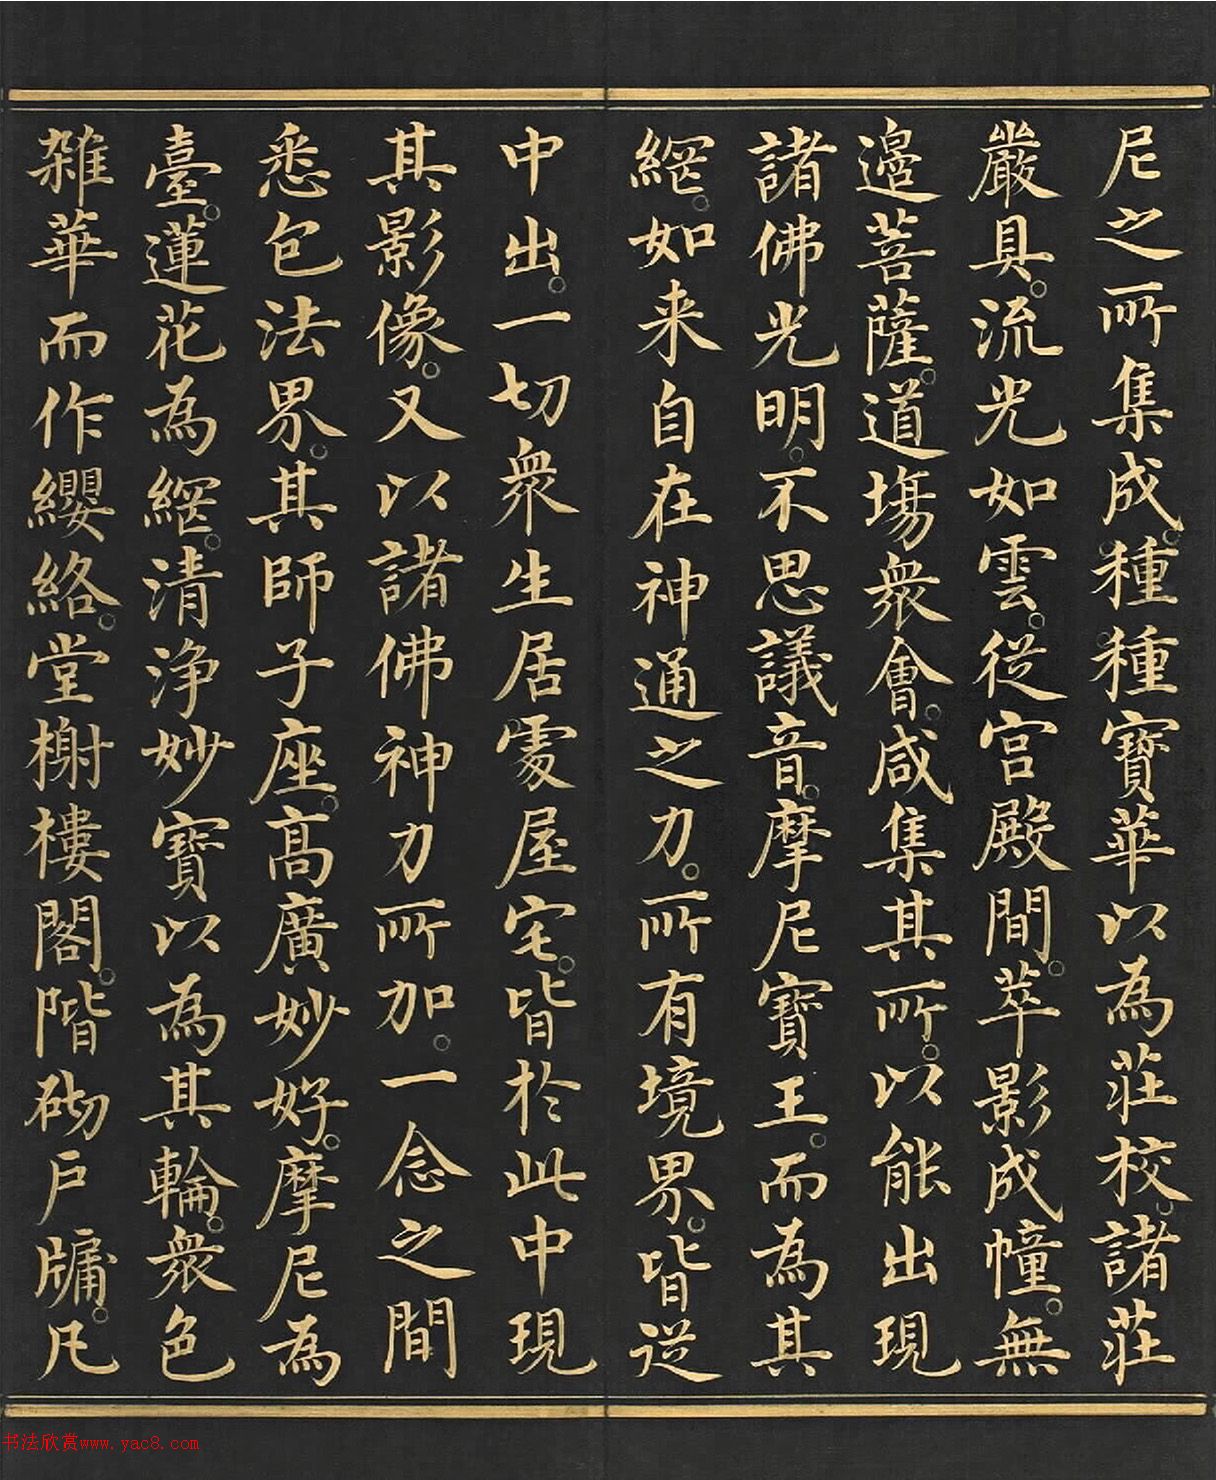 尼之所集成種種寶華以為莊校諸莊
嚴具流光如雲從宮殿間萃影成幢無
邊菩薩道場衆會咸集其所以能出現
諸佛光明不思議音摩尼寶王而為其
網如来自在神通之力所有境界皆從
中出一切衆生居處屋宅皆於此中現
其影像又以諸佛神力所加一念之間
悉包法界其師子座髙廣妙好摩尼為
臺蓮花為網清淨妙寶以為其輪衆色
雑華而作纓絡堂榭樓閣階砌户牖凡
书法欣赏www.yac8.com